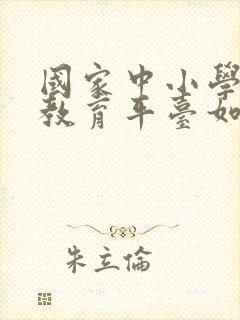 國家中小學
教育平臺如
朱立倫